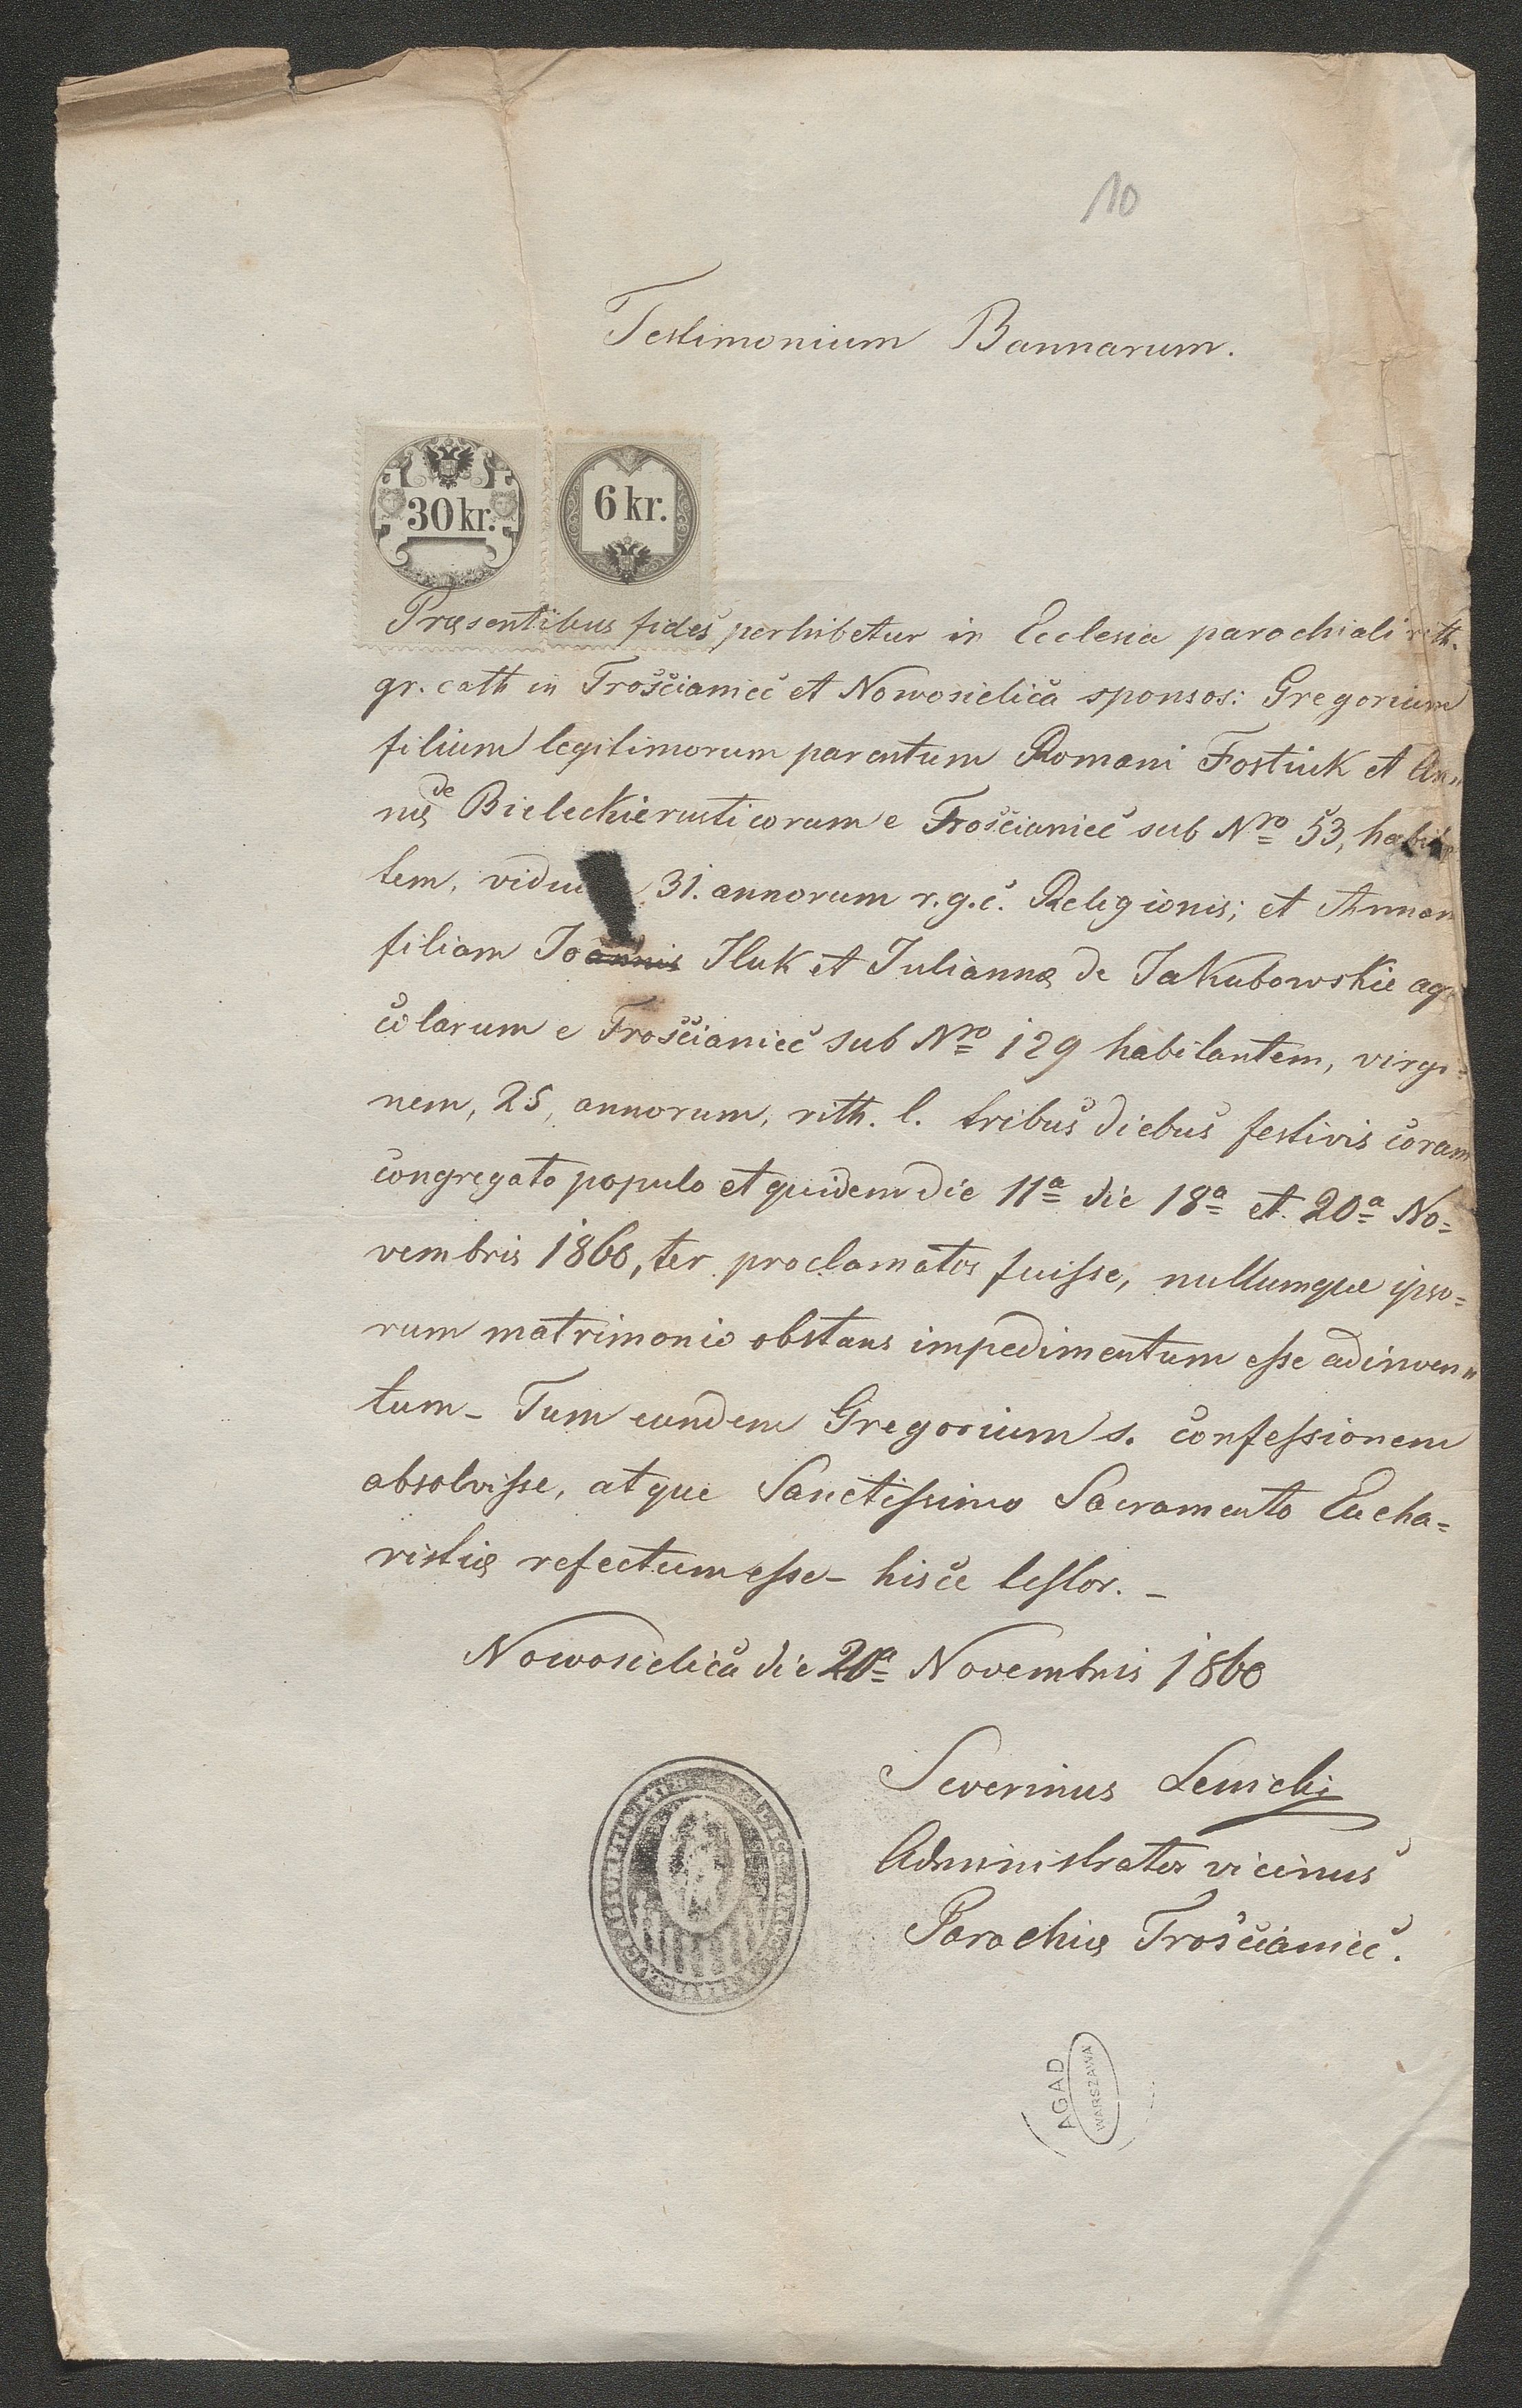 10
Testimonium Bannarum.
30 kr.
6 kr.
Præsentibus fides perhibetur in Ecclesia parochiali rith.
gr. cath in Trościaniec et Nowosielica sponsos: Gregorium
filium legitimorum parentum Romani Fostiuk et An„
næ de Bieleckie rusticorum e Trościaniec sub Nro 53, habitan
tem, viduum 31. annorum r.g.c. Religionis; et Annam
filiam Joannis Iluk et Juliannæ de Jakubowskie agri
colarum e Trościaniec sub Nro 129 habitantem, virgi=
nem, 25, annorum, rith. l. tribus diebus festivis coram
congregato populo et quidem die 11a die 18a et 20a No=
vembris 1860, ter proclamatos fuisse, nullumque ipso=
rum matrimonio obstans impedimentum esse adinven„
tum_ Tum eundem Gregorium s. confessionem
absolvisse, atque Sanctissimo Sacramento Eucha=
ristiæ refectum esse_ hisce testor._
Nowosielica die 20a Novembris 1860
Severinus
Administrator vicinus
Parochiæ Trościaniec.
AGAD
WARSZAWA